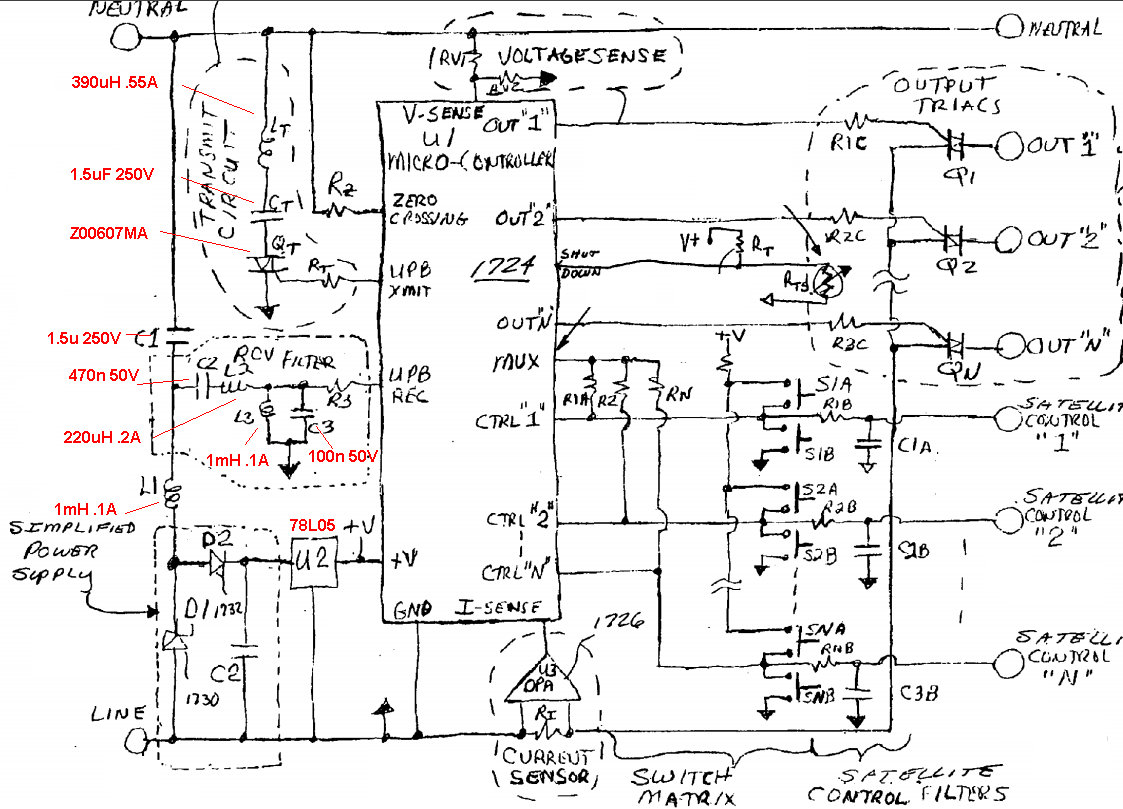 NEUTRAL
NEUTRAL
RV1
VOLTAGE SENSE
RV2
390uH .55A
LT
TRANSMIT
CIRCUIT
1.5uF 250V
CT
Z00607MA
QT
RT
RZ
V-SENSE
U1
MICRO-CONTROLLER
OUT "1"
ZERO
CROSSING
OUT "2"
UPB
XMIT
1724
SHUT
DOWN
OUT "N"
MUX
UPB
REC
CTRL "1"
CTRL "2"
CTRL "N"
+V
GND
I-SENSE
V+
RT
RTS
OUTPUT
TRIACS
R1C
Q1
OUT "1"
R2C
Q2
OUT "2"
R3C
QN
OUT "N"
1.5u 250V
C1
RCV FILTER
470n 50V
C2
L2
R3
220uH .2A
L3
C3
1mH .1A
100n 50V
L1
1mH .1A
SIMPLIFIED
POWER
SUPPLY
D2
78L05
+V
U2
D1
1732
C2
1730
R1A
R2
RN
+V
S1A
R1B
S1B
C1A
SATELLITE
CONTROL
"1"
S2A
R2B
S2B
SATELLITE
CONTROL
"2"
SNA
SNB
C3B
CONTROL
"N"
LINE
1726
U3
OPA
RI
CURRENT
SENSOR
SWITCH
MATRIX
SATELLITE
CONTROL FILTERS